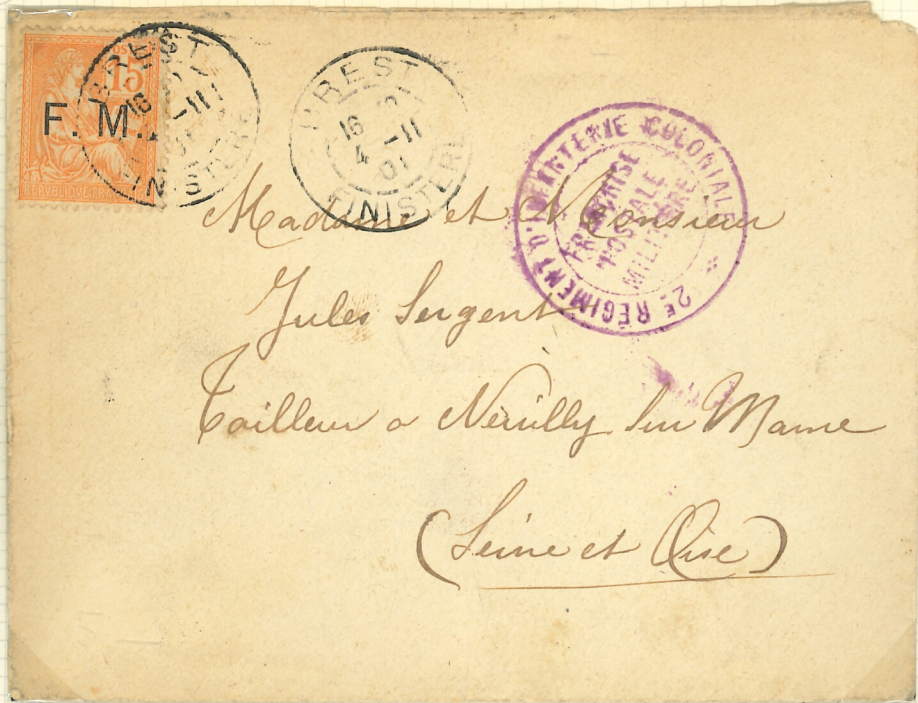 POSTES
15
F. M.
MERVEILLEUSE
BREST
16
4 -11
01
FINISTERE
BREST
16
4 -11
01
FINISTERE
2E RÉGIMENT D'INFANTERIE COLONIALE
FRANÇAISE
POSTALE
MILITAIRE
Madame et Monsieur
Jules Sergent
Tailleur a Neuilly sur Marne
(Seine et Oise)